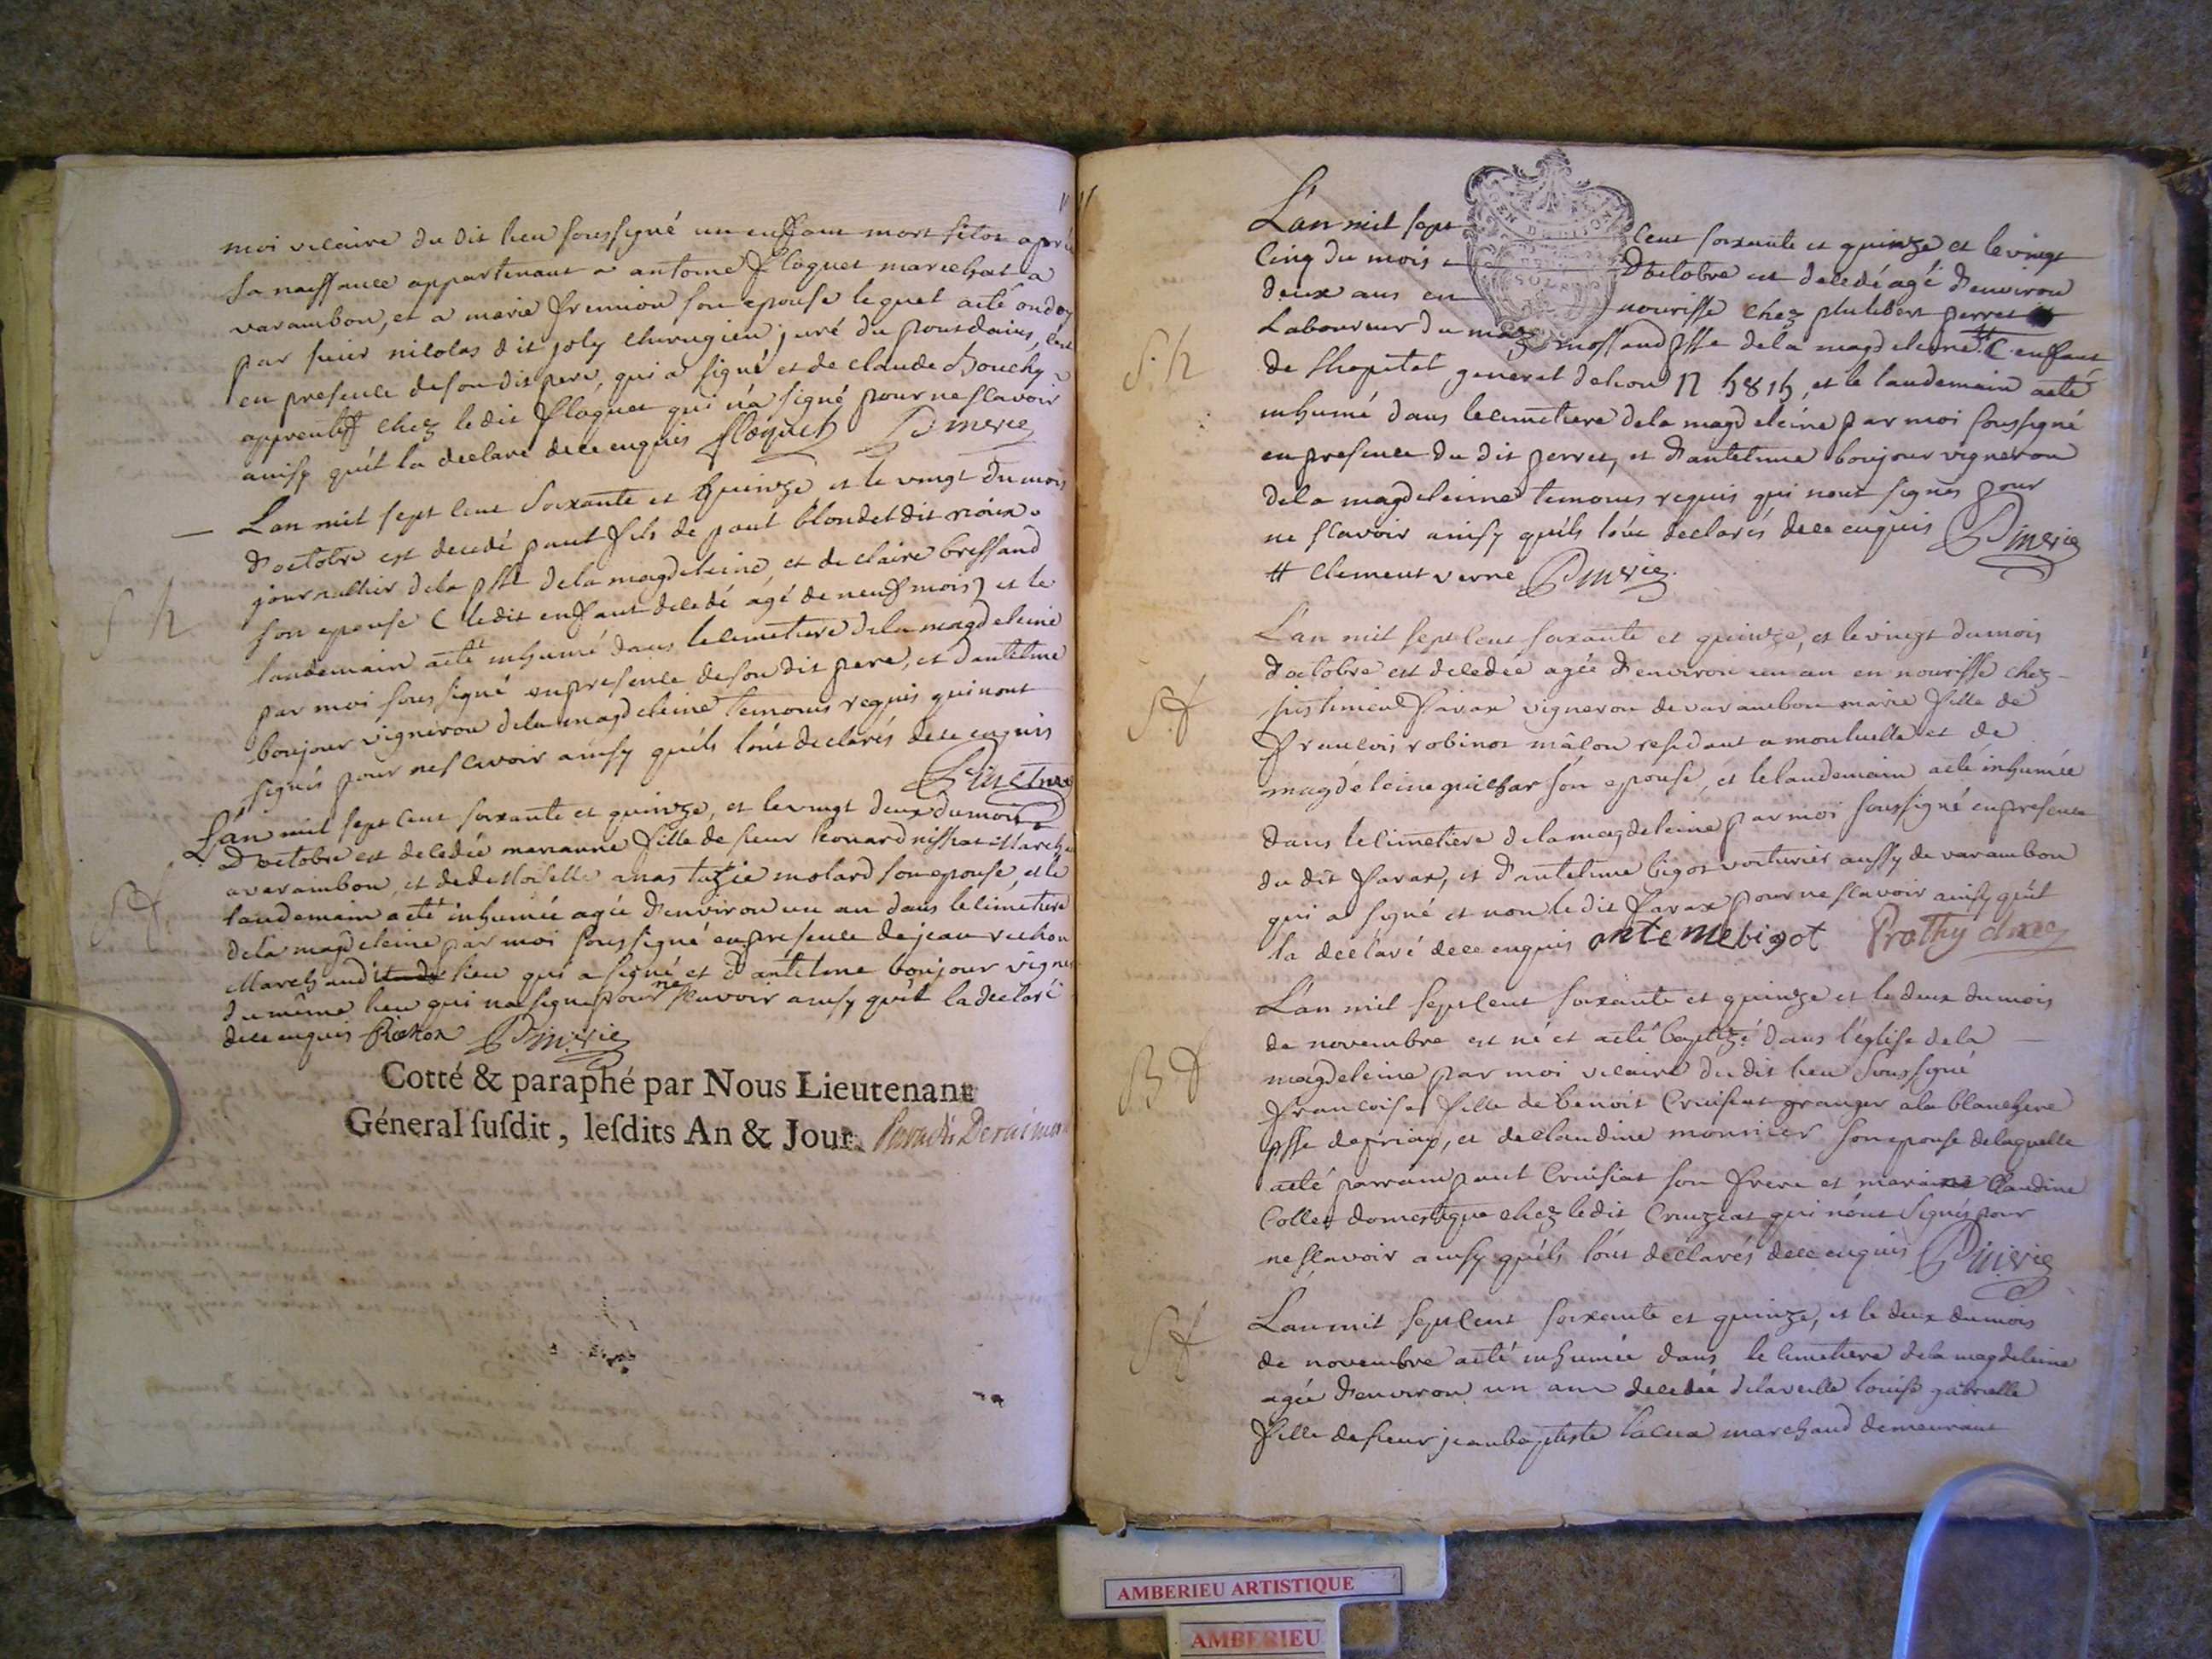 moi vicaire du dit lieu soussigné un enffant mort sitot aprè
sa naissance appartenant a antoine floquet marechat a
varambon, et a marie fremion son epouse lequel acté ondoy
par sieur nicolas dit joly chirugien juré du pontdains,
en presence deson dit pere, qui a signé et de claude Bouchy
apprentiff chez ledit floquet qui n'a signé pour ne scavoir
ainsy qu'il la declare dece enquis floquet
Lan mil sept cent soixante et quinze, et le vingt du mois
d'octobre est decedé paul fils de paul blondet dit rioux
journallier dela psse dela magdeleine, et de claire bressand
son epouse (ledit enffant decedé agé de neuf mois) et le
landemain acté inhumé dans le cimetiere dela magdeleine
par moi soussigné en presence deson dit pere, et d'antelme
boujour vigneron dela magdeleine temoins requis qui nont
signés pour ne scavoir ainsy quils l'ont declarés dece enquis
L'an mil sept cent soixante et quinze, et le vingt deux du mois
D'octobre est decedée marianne fille de sieur leonard
a varambon, et dedemoiselle anastazie molard son epouse, et le
landemain acté inhumée agée d'environ un an dans le cimetiere
dela magdeleine par moi soussigné en presence de jean
Marchand lieu qui a signé et d'antelme boujour vigne
du même lieu qui na signe pour ne scavoir ainsy qu'il la declaré
dece enquis
Cotté & paraphé par Nous Lieutenant
Géneral susdit, lesdits An & Jour.
S. h
L'an mil sept cent soixante et quinze et le vingt
cinq du mois D'octobre est decedé agé d'environ
deux ans en nourisse chez philibert perret
Laboureur du psse dela magdeleine # enffant
de lhopital general delion n 5815, et le landemain acté
inhumé dans le cimetiere dela magdeleine par moi soussigné
en presence du dit perret, et d'antelme boujour vigneron
dela magdeleinne temoins requis qui nont signés pour
ne scavoir ainsy quils l'ont declarés dece enquis
# clement verne
S. f
L'an mil sept cent soixante et quinze, et le vingt du mois
d'octobre est decedée agée d'environ un an en nourisse chez
favax vigneron de varambon marie fille de
francois robinot mâcon residant a montluelle et de
magdeleine son epouse, et le landemain acté inhumée
dans le cimetiere dela magdeleine par moi soussigné en presence
du dit favax, et d'antelme bigot voiturier aussy de varambon
qui a signé et non le dit favax pour ne scavoir ainsy qu'il
la declaré dece enquis antemebigot
B f
L'an mil sept cent soixante et quinze et le deux du mois
de novembre est né et acté baptizé dans l'église dela
magdeleine par moi vicaire du dit lieu soussigné
francoise fille de benoit Cruisiat granger a la blanchere
psse depriay, et declaudine son epouse delaquelle
acté parrain paul Cruisiat son frere et maraine Claudine
Collet domestique chez ledit Cruiziat qui n'ont signés pour
ne scavoir ainsy quils l'ont declarés dece enquis
S f
L'an mil sept cent soixante et quinze, et le deux du mois
de novembre acté inhumée dans le cimetiere dela magdeleine
agée d'environ un an decedée dela veille louise gabrielle
fille de sieur jean baptiste marchand demeurant
AMBERIEU ARTISTIQUE
AMBERIEU